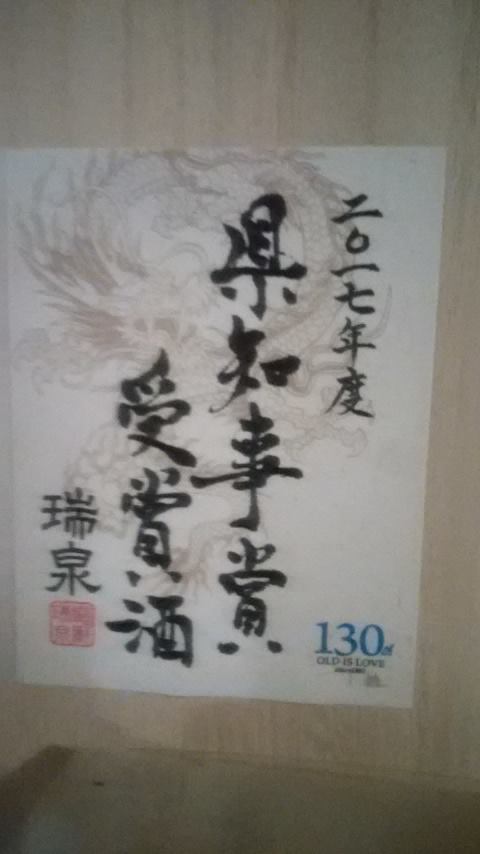 二〇一七年度
県知事賞
受賞酒
瑞泉
130th
OLD IS LOVE